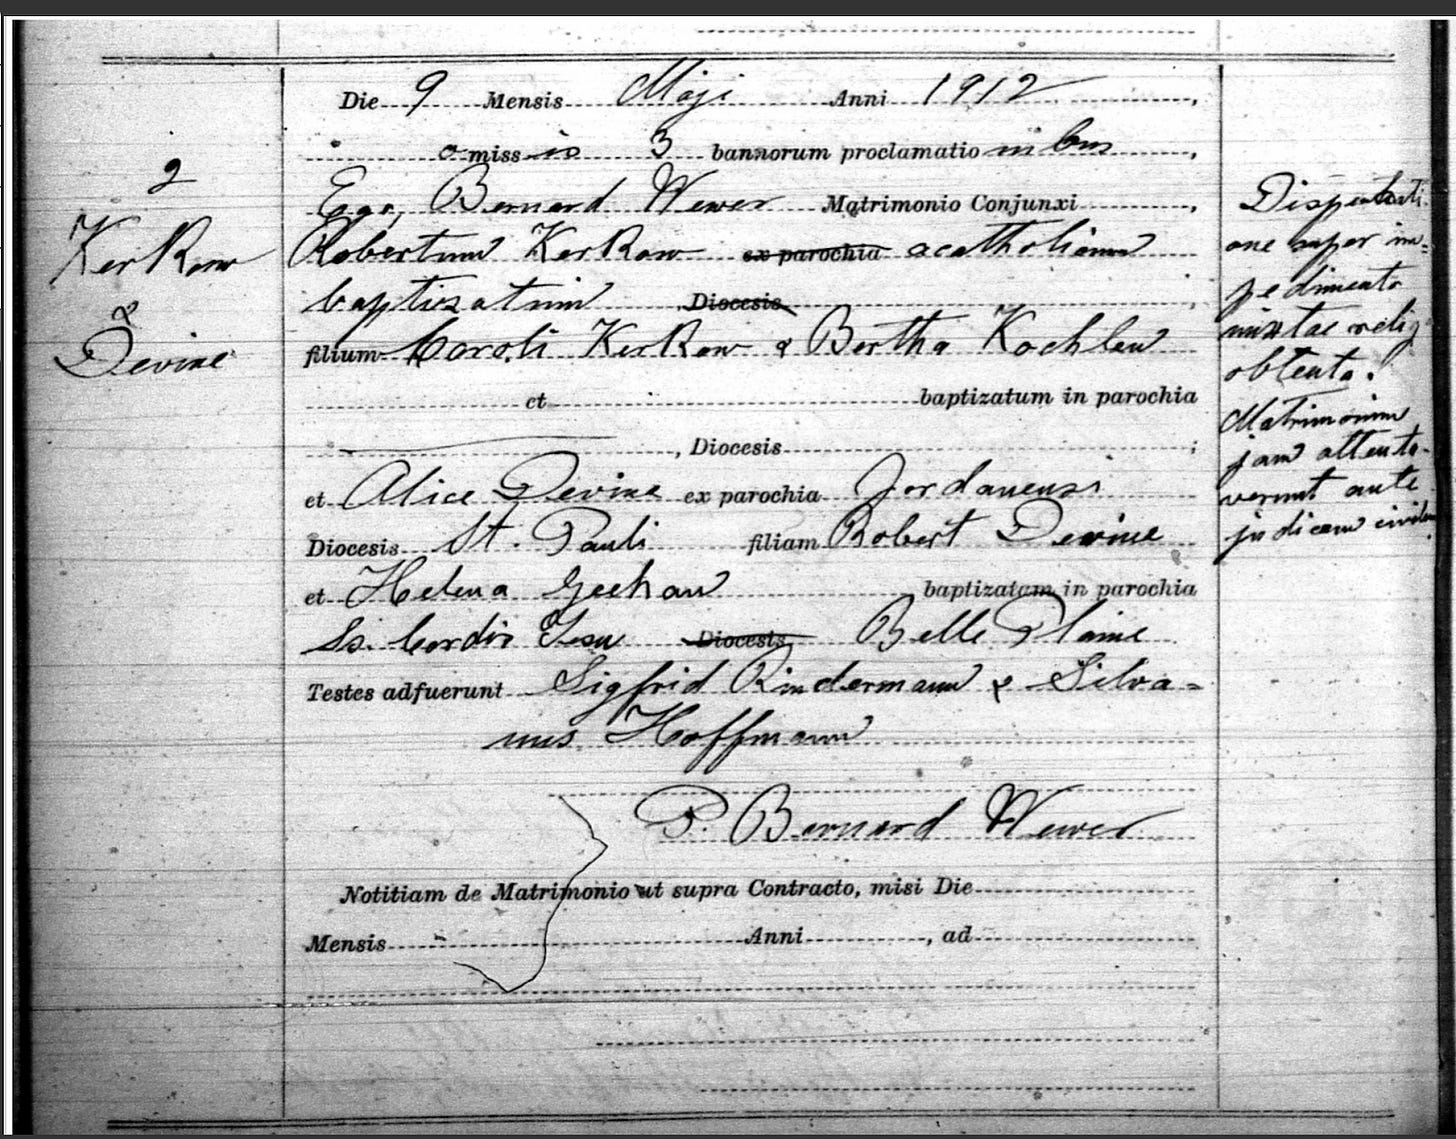 Die 9 Mensis Maji Anni 1912,
omissis 3 bannorum proclamationibus,
2
Ego, Bernard Wewer Matrimonio Conjunxi,
KerKow
&
Devine
Robertum KerKow ex parochia acatholicum
baptizatum Diocesis,
filium Caroli KerKow & Bertha Kochlen
et baptizatum in parochia
, Diocesis ;
et Alice Devine ex parochia Jordanensi
Diocesis St. Pauli filiam Robert Devine
et Helena Geehan baptizatam in parochia
Ss. Cordis Jesu Diocesis Belle Plaine
Testes adfuerunt Sigfrid Rindermann & Silva=
nus Hoffmann
P. Bernard Wewer
Notitiam de Matrimonio ut supra Contracto, misi Die
Mensis Anni , ad
Dispensati
one super im=
pedimento
mixtae relig
obtenta.
Matrimonium
jam attenta-
verunt ante
judicem civilem.